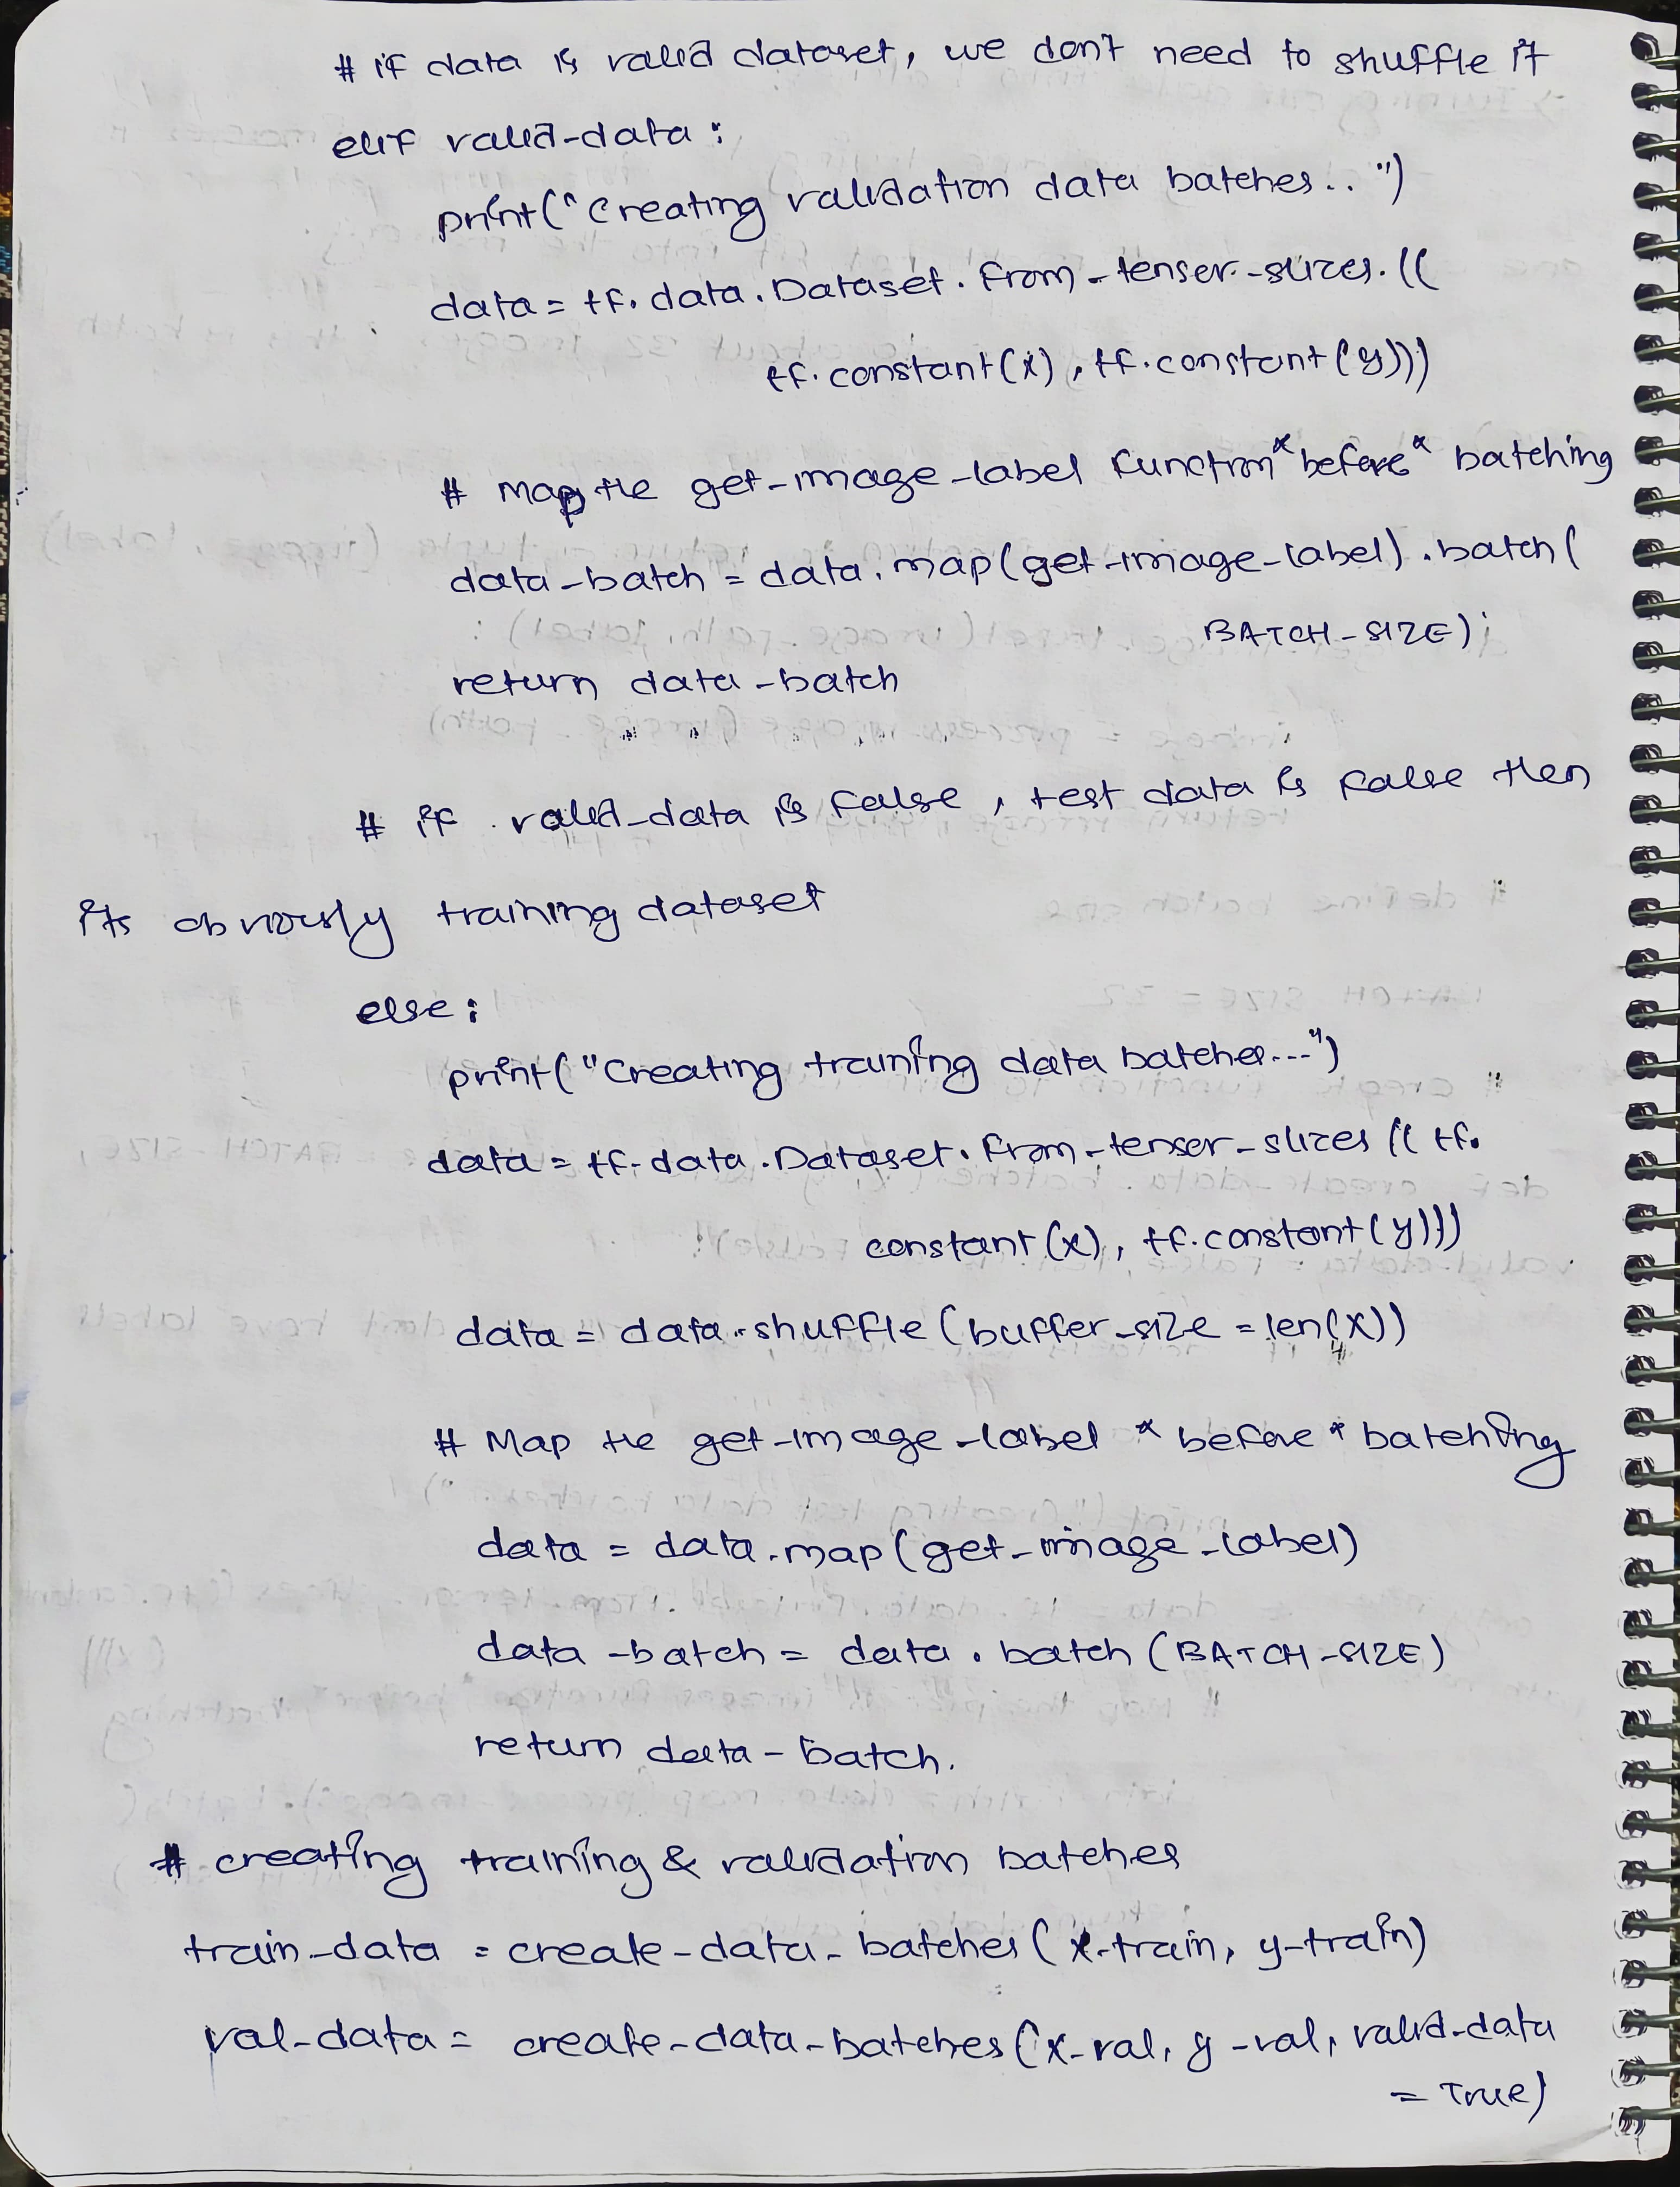 # if data is valid dataset, we don't need to shuffle it
elif valid-data :
print("Creating validation data batches.. ")
data = tf. data. Dataset. from-tenser-slices. ((
tf. constant(x), tf. constant(y)))
# Map the get-image-label function *before* batching
data-batch = data. map(get-image-label). batch(
BATCH-SIZE);
return data-batch
# if valid-data is false, test data is false then
its obviously training dataset
else :
print("Creating training data batches...")
data = tf. data. Dataset. from-tenser-slices (( tf.
constant (x), tf. constant(y)))
data = data. shuffle (buffer-size = len(x))
# Map the get-image-label *before* batching
data = data. map(get-image-label)
data-batch = data. batch (BATCH-SIZE)
return data-batch.
# creating training & validation batches
train-data = create-data-batches (x-train, y-train)
val-data = create-data-batches (x-val, y-val, valid-data
= True)